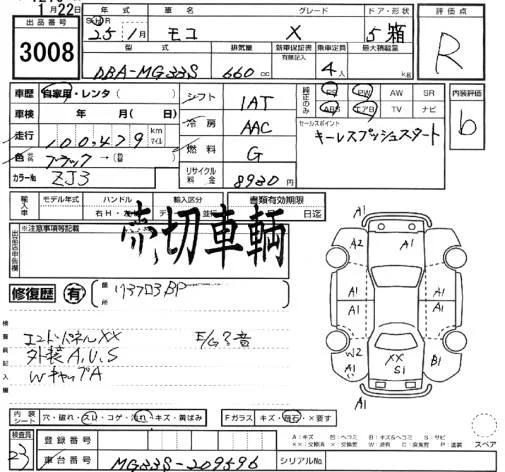 1月22日
出品番号 年式 車名 グレード ドア・形状 評価点
3008 25年1月 モコ X 5 箱 R
型式 排気量 新車保証書 乗車定員 最大積載量
有無記入
DBA-MG33S 660cc 4人 kg
車歴 自家用・レンタ( ) シフト 1AT 純正のみ PS PW AW SR 内装評価
車検 年 月( 日) 冷房 AAC ABS エアB TV ナビ b
走行 100,479 km マイル セールスポイント
キーレスプッシュスタート
色 ブラック→( ) 燃料 G
カラーNo ZJ3 リサイクル料金 8920円
輸入車 モデル年式 ハンドル 輸入区分 書類有効期限
右H・ 日迄
※注意事項等記載
出品店申告欄
切車輌
修復歴 有 箇所
検査員記入欄
エンドパネルXX E/G?音
外装A,U,S
WキャップA
A1
A2 A1
A1 A1
A1 A1
W2 XX B1
S1
A1 A1
内装シート 穴・破れ・スレ・コゲ・汚れ・キズ・黄ばみ Fガラス キズ・飛石・×要す
スペア
検査員 登録番号
23 車台番号 MG33S-209596 シリアルNo